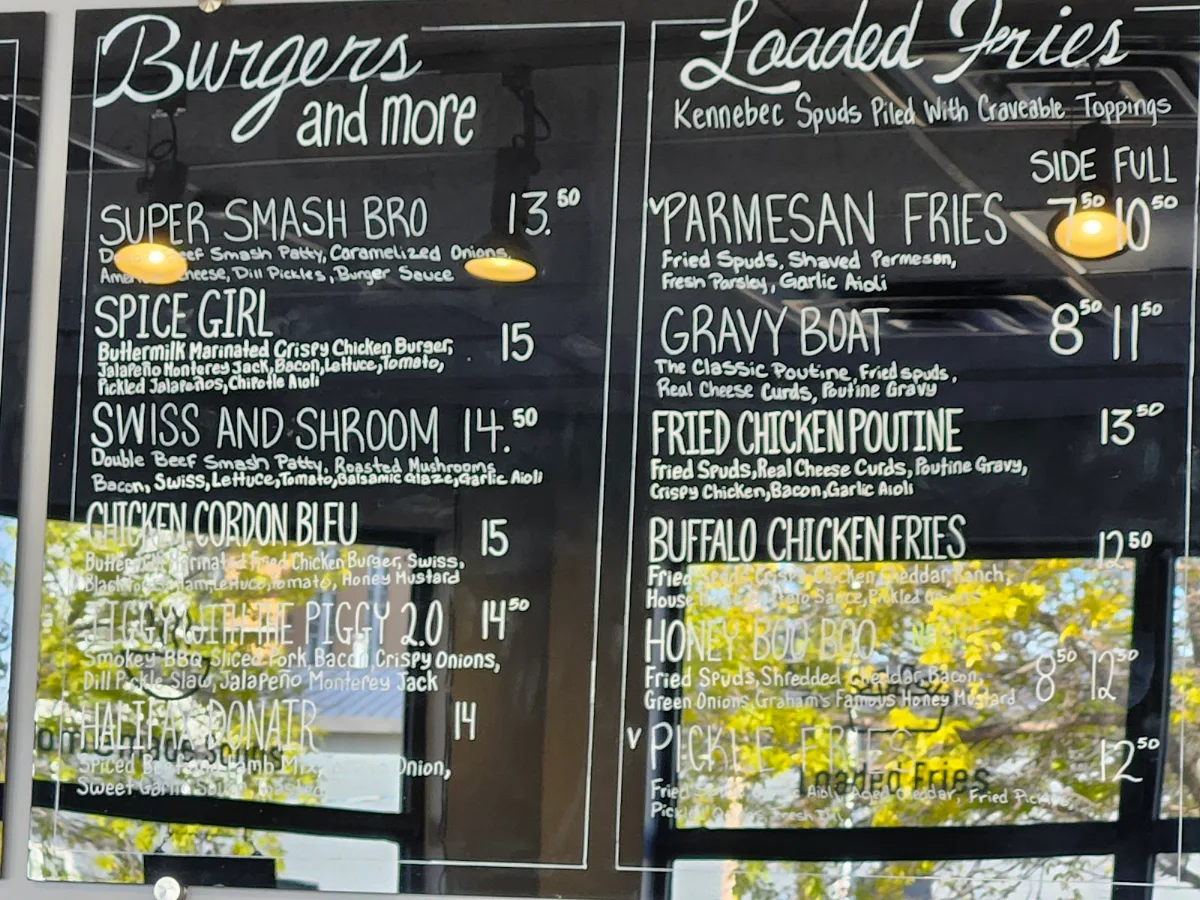 Burgers
and more
SUPER SMASH BRO 13.50
Beef Smash Patty, Caramelized Onions,
American Cheese, Dill Pickles, Burger Sauce
SPICE GIRL 15
Buttermilk Marinated Crispy Chicken Burger,
Jalapeño Monterey Jack, Bacon, Lettuce, Tomato,
Pickled Jalapeños, Chipotle Aioli
SWISS AND SHROOM 14.50
Double Beef Smash Patty, Roasted Mushrooms
Bacon, Swiss, Lettuce, Tomato, Balsamic Glaze, Garlic Aioli
CHICKEN CORDON BLEU 15
Buttermilk Marinated Fried Chicken Burger, Swiss,
Ham, Lettuce, Tomato, Honey Mustard
PIGGY 2.0 14 50
Smokey BBQ Sliced Pork, Bacon, Crispy Onions,
Dill Pickle Slaw, Jalapeño Monterey Jack
HALIFAX DONAIR 14
Spiced Beef Lamb Onion,
Sweet Garlic
Loaded Fries
Kennebec Spuds Piled With Craveable Toppings
SIDE FULL
V PARMESAN FRIES 7 50 10 50
Fried Spuds, Shaved Permesan,
Fresh Parsley, Garlic Aioli
GRAVY BOAT 8 50 11 50
The Classic Poutine, Fried spuds,
Real Cheese Curds, Poutine Gravy
FRIED CHICKEN POUTINE 13 50
Fried Spuds, Real Cheese Curds, Poutine Gravy,
Crispy Chicken, Bacon, Garlic Aioli
BUFFALO CHICKEN FRIES 12 50
Fried Spuds, Crispy Chicken, Cheddar, Ranch,
House Buffalo Sauce, Pickled
HONEY BOO BOO 8 50 12 50
Fried Spuds, Shredded Cheddar, Bacon,
Green Onions, Graham's Famous Honey Mustard
V PICKLE FRIES 12 50
Loaded Fries
Fried Aioli, Aged Cheddar, Fried